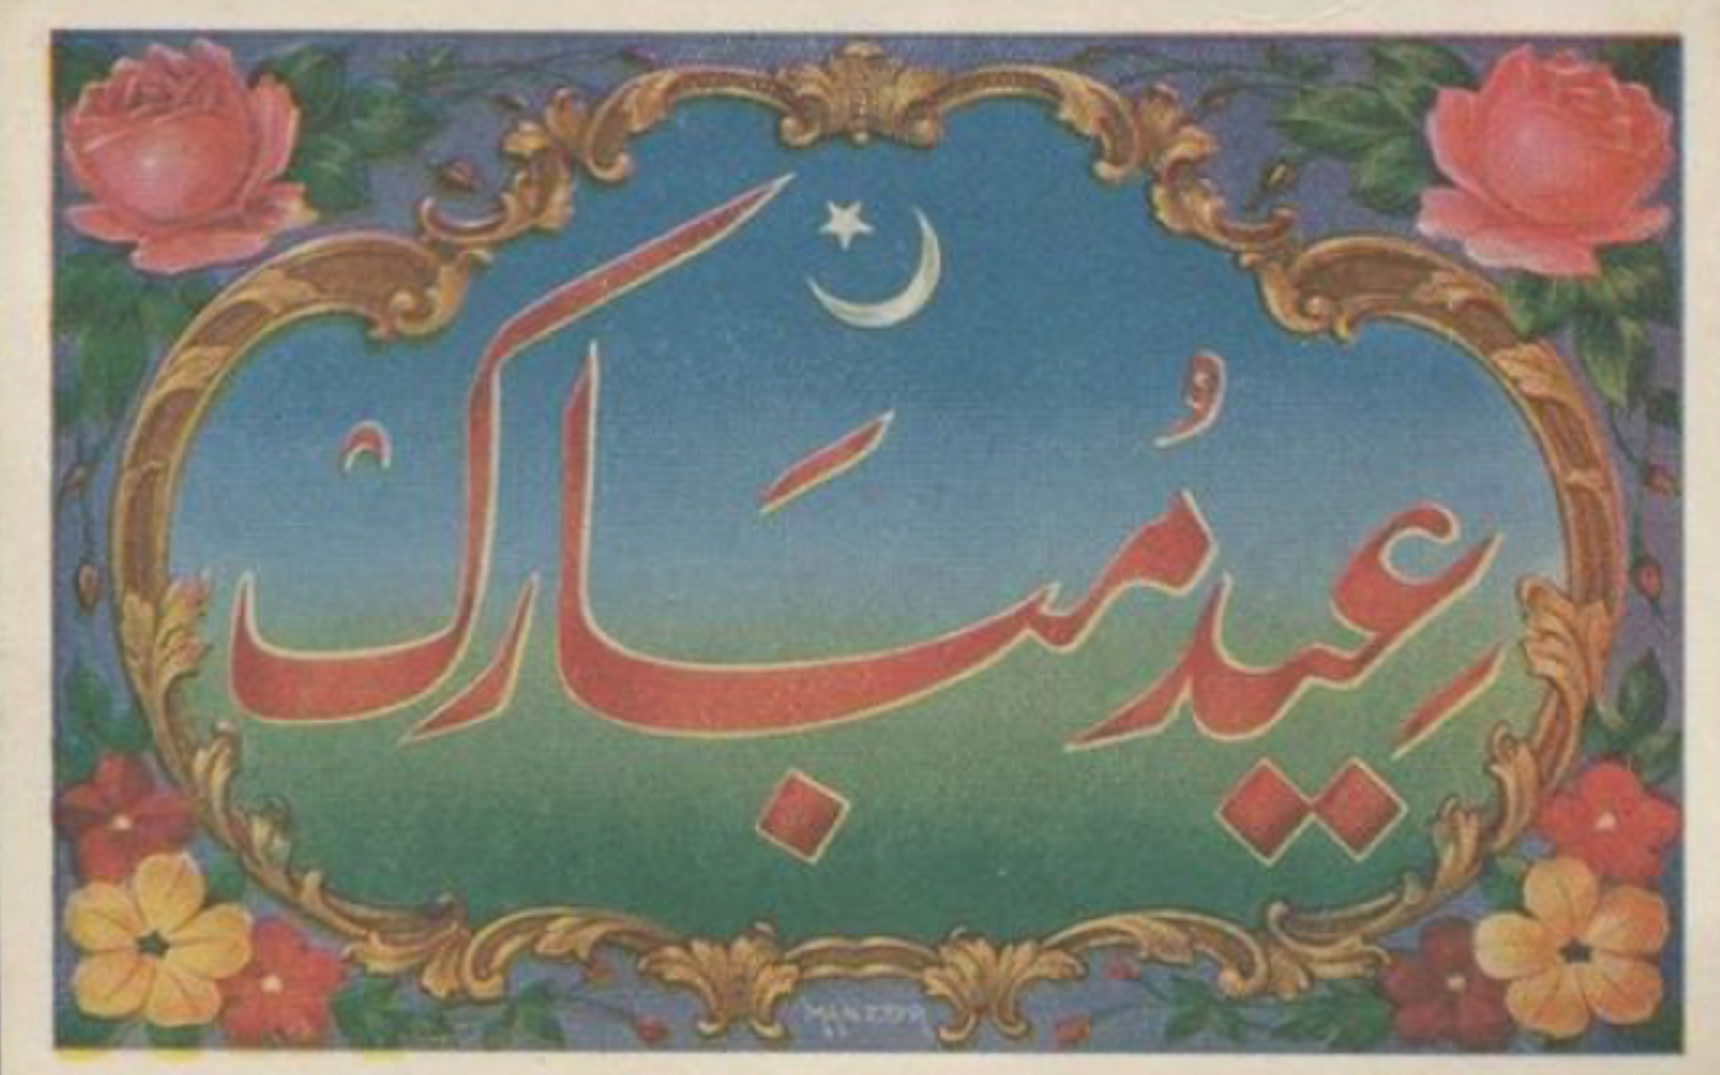 عِید مُبَارکْ
MANZOOR